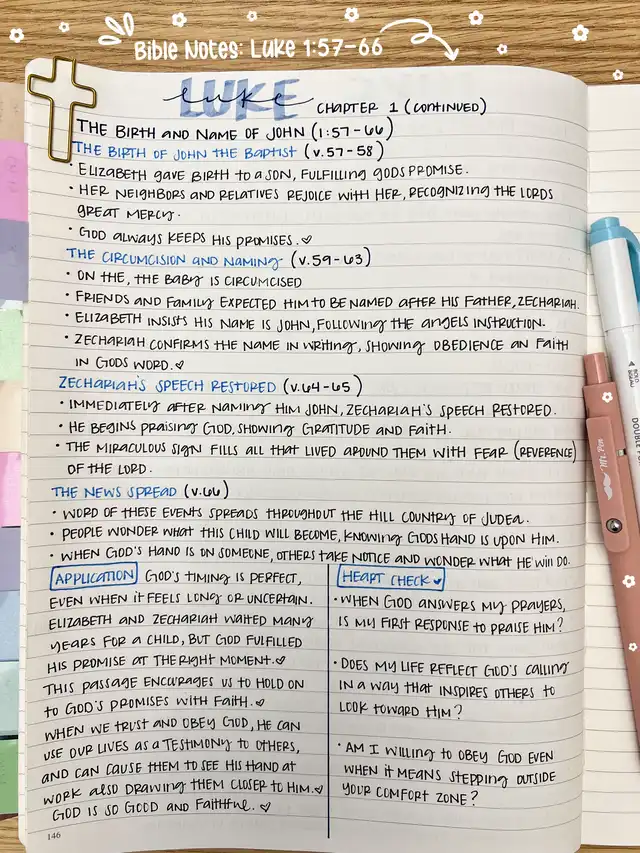 Bible Notes: Luke 1:57-66
LUKE
luke
CHAPTER 1 (CONTINUED)
THE BIRTH AND NAME OF JOHN (1:57-66)
THE BIRTH OF JOHN THE BAPTIST (v.57-58)
• ELIZABETH GAVE BIRTH TO A SON, FULFILLING GODS PROMISE.
• HER NEIGHBORS AND RELATIVES REJOICE WITH HER, RECOGNIZING THE LORDS
GREAT MERCY.
• GOD ALWAYS KEEPS HIS PROMISES.♡
THE CIRCUMCISION AND NAMING (v.59-63)
• ON THE, THE BABY IS CIRCUMCISED
• FRIENDS AND FAMILY EXPECTED HIM TO BE NAMED AFTER HIS FATHER, ZECHARIAH.
• ELIZABETH INSISTS HIS NAME IS JOHN, FOLLOWING THE ANGELS INSTRUCTION.
• ZECHARIAH CONFIRMS THE NAME IN WRITING, SHOWING OBEDIENCE AN FAITH
IN GODS WORD.♡
ZECHARIAH'S SPEECH RESTORED (v.64-65)
• IMMEDIATELY AFTER NAMING HIM JOHN, ZECHARIAH'S SPEECH RESTORED.
• HE BEGINS PRAISING GOD, SHOWING GRATITUDE AND FAITH.
• THE MIRACULOUS SIGN FILLS ALL THAT LIVED AROUND THEM WITH FEAR (REVERENCE)
OF THE LORD.
THE NEWS SPREAD (v.66)
• WORD OF THESE EVENTS SPREADS THROUGHOUT THE HILL COUNTRY OF JUDEA.
• PEOPLE WONDER WHAT THIS CHILD WILL BECOME, KNOWING GODS HAND IS UPON HIM.
• WHEN GOD'S HAND IS ON SOMEONE, OTHERS TAKE NOTICE AND WONDER WHAT HE WILL DO.
APPLICATION GOD'S TIMING IS PERFECT,
EVEN WHEN IT FEELS LONG OR UNCERTAIN.
ELIZABETH AND ZECHARIAH WAITED MANY
YEARS FOR A CHILD, BUT GOD FULFILLED
HIS PROMISE AT THE RIGHT MOMENT.♡
THIS PASSAGE ENCOURAGES US TO HOLD ON
TO GOD'S PROMISES WITH FAITH.♡
WHEN WE TRUST AND OBEY GOD, HE CAN
USE OUR LIVES AS A TESTIMONY TO OTHERS,
AND CAN CAUSE THEM TO SEE HIS HAND AT
WORK ALSO DRAWING THEM CLOSER TO HIM.♡
GOD IS SO GOOD AND FAITHFUL.♡
HEART CHECK ♥
• WHEN GOD ANSWERS MY PRAYERS,
IS MY FIRST RESPONSE TO PRAISE HIM?
• DOES MY LIFE REFLECT GOD'S CALLING
IN A WAY THAT INSPIRES OTHERS TO
LOOK TOWARD HIM?
• AM I WILLING TO OBEY GOD EVEN
WHEN IT MEANS STEPPING OUTSIDE
YOUR COMFORT ZONE?
146
Mr. Pen